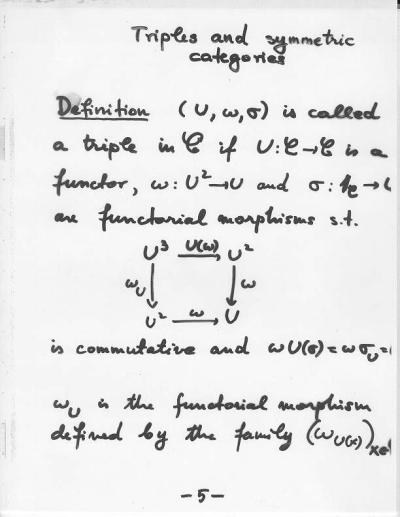 Triples and symmetric
categories
Definition (U, ω, σ) is called
a triple in 𝒞 if U: 𝒞 → 𝒞 is a
functor, ω: U² → U and σ: 1_𝒞 →
are functorial morphisms s.t.
U³ U(ω) → U²
ω_U ↓ ↓ ω
U² ω → U
is commutative and ωU(σ) = ωσ_U =
ω_U is the functorial morphism
defined by the family (ω_U(x))_x∈
- 5 -